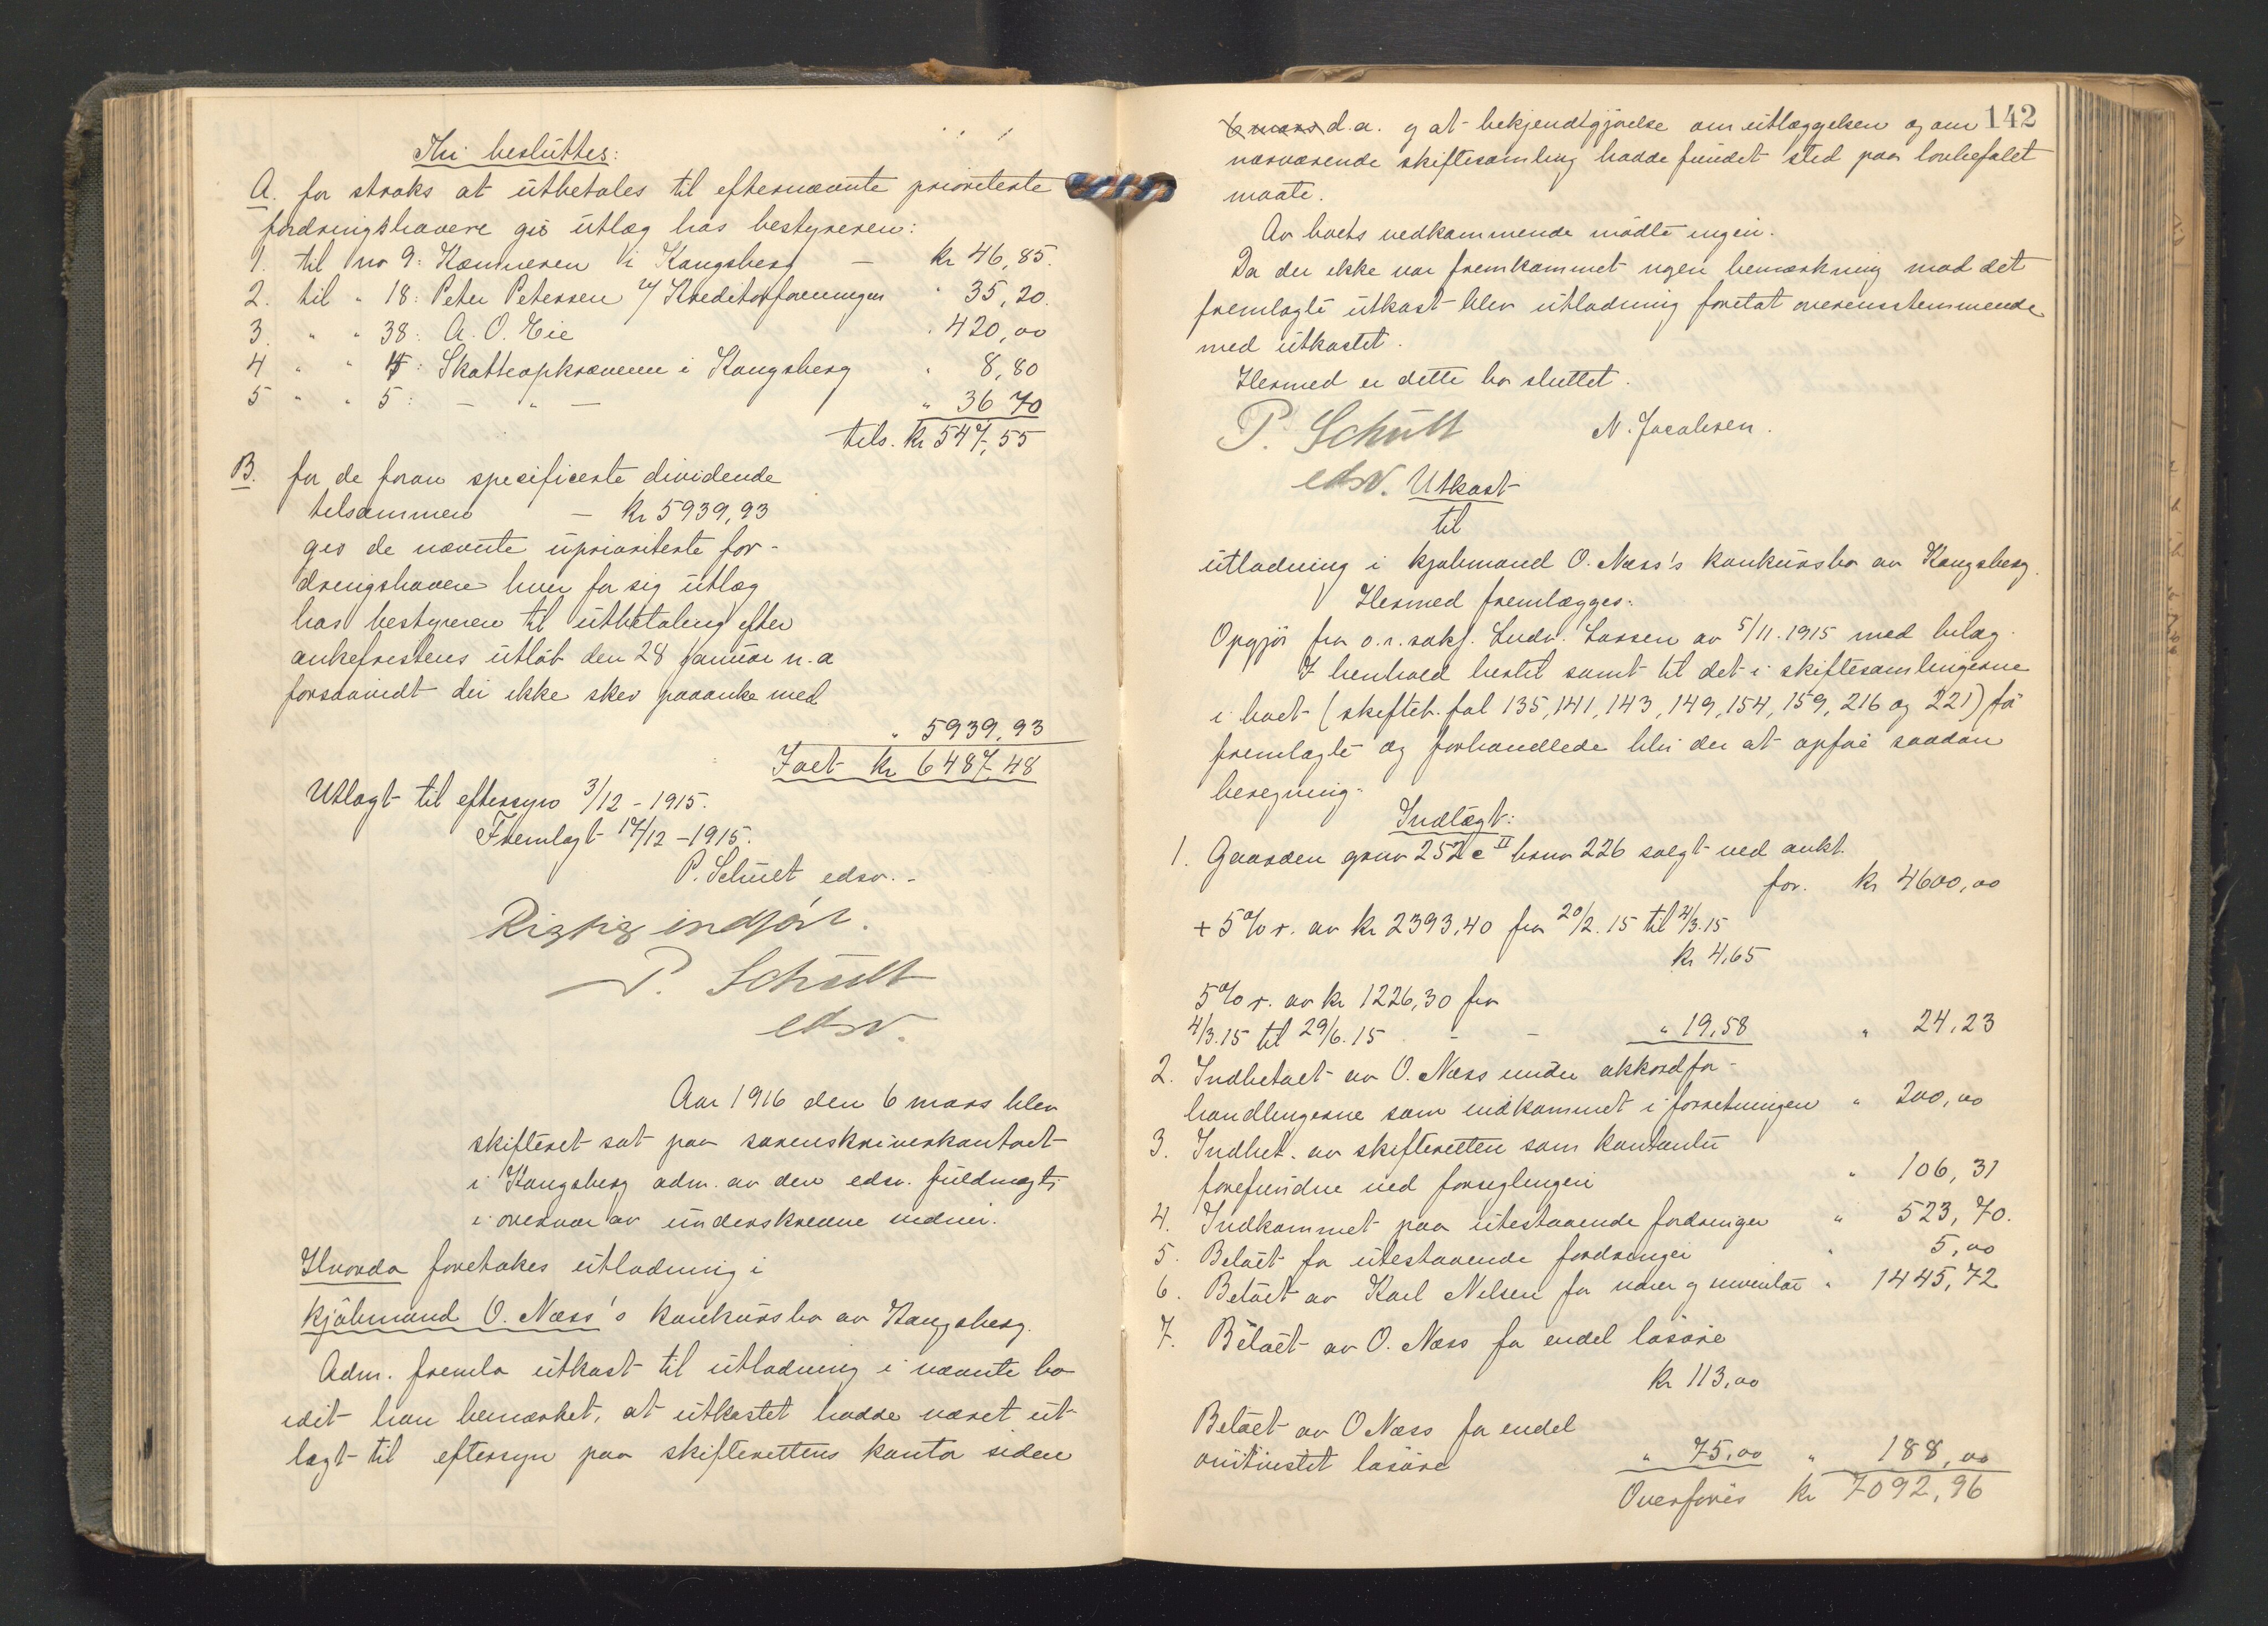 Thi besluttes:
A. for straks at utbetales til efternævnte prioriterte
fordringshavere gis utlæg hos bestyreren:
1. til no 9: Kæmneren i Kongsberg — kr 46,85.
2. til " 18: Peter Petersen v/ Kreditorforeningen " 35,20.
3. " " 38: A. O. Eie " 420,00
4 " " 4: Skatteopkræveren i Kongsberg " 8,80
5 " " 5: — " — " 36 70
tils. kr 547,55
B. for de foran specificerte dividende
tilsammen — kr 5939,93
gis de nævnte uprioriterte for-
dringshavere hver for sig utlæg
hos bestyreren til utbetaling efter
ankefristens utløb den 28 januar n.a
forsaavidt der ikke skev paaanke med
" 5939,93
Ialt kr 6487,48
Utlagt til eftersyn 3/12 - 1915.
Fremlagt 17/12 - 1915.
P. Schult edsv. -
Rigtig indført.
P. Schult
edsv.
Aar 1916 den 6 mars blev
skifteret sat paa sorenskriverkontoret
i Kongsberg adm. av den edsv. fuldmægti
i overvær av underskrevne vidner.
Hvorda foretakes utlodning i
kjøbmand O. Næss's konkursbo av Kongsberg.
Adm. fremla utkast til utlodning i nævnte bo
idet han bemærket, at utkastet hadde været ut-
lagt til eftersyn paa skifterettens kontor siden
142
6 mars d.a. og at bekjendtgjørelse om utlæggelsen og om
nærværende skiftesamling hadde fundet sted paa lovbefalet
maate.
Av boets vedkommende mødte ingen.
Da der ikke var fremkommet ngen bemærkning mod det
fremlagte utkast blev utlodning foretat overensstemmende
med utkastet.
Hermed er dette bo sluttet.
P. Schult N. Jacobsen.
edsv.
Utkast
til
utlodning i kjøbmand O. Næss's konkursbo av Kongsberg.
Hermed fremlægges:
Opgjør fra o.r.sakf. Ludv. Lassen av 5/11.1915 med bilag.
I henhold hertil samt til det i skiftesamlingerne
i boet (skifteb. fol 135, 141, 143, 149, 154, 159, 216 og 221) fø
fremlagte og forhandlede blir der at opføre saadan
beregning.
Indtægt:
1. Gaarden grnr 252 c II brnr 226 solgt ved aukt.
for. kr 4600,00
+ 5% r. av kr 2393,40 fra 20/2. 15 til 4/3.15
kr 4,65
5% r. av kr 1226,30 fra
4/3.15 til 29/6.15 - - " 19,58 " 24,23
2. Indbetalt av O. Næss under akkordfor-
handlingerne som indkommet i forretningen " 200,00
3. Indbet. av skifteretten som kontanter
forefundne ved forseglingen " 106,31
4. Indkommet paa utestaaende fordringer " 523,70.
5. Betalt for utestaaende fordringer " 5,00
6. Betalt av Karl Nilsen for varer og inventar " 1445,72
7. Betalt av O. Næss for endel løsøre
kr 113,00
Betalt av O Næss for endel
omtvistet løsøre " 75,00 " 188,00
Overføres kr 7092,96